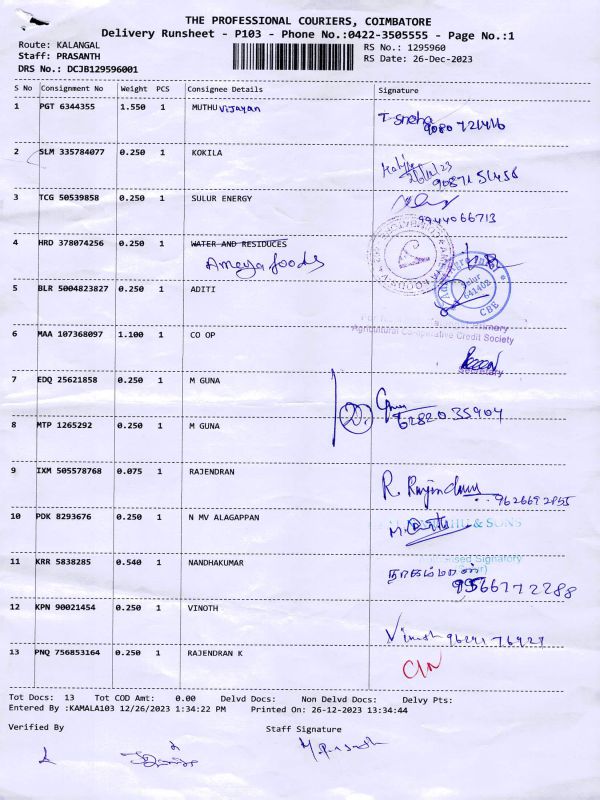 THE PROFESSIONAL COURIERS, COIMBATORE
Delivery Runsheet - P103 - Phone No.:0422-3505555 - Page No.:1
Route: KALANGAL
RS No.: 1295960
Staff: PRASANTH
RS Date: 26-Dec-2023
DRS No.: DCJB129596001
S No Consignment No Weight PCS Consignee Details Signature
1 PGT 6344355 1.550 1 MUTHU Vijayan
T Sneha
9080721416
2 SLM 335784077 0.250 1 KOKILA
26/12/23
9087151458
3 TCG 50539858 0.250 1 SULUR ENERGY
9944066713
4 HRD 378074256 0.250 1 WATER AND RESIDUCES
Ameya foods
5 BLR 5004823827 0.250 1 ADITI
Sulur
641402
CBE
6 MAA 107368097 1.100 1 CO OP
Agricultural Co-operative Credit Society
Secretary
7 EDQ 25621858 0.250 1 M GUNA
2.
6282035904
8 MTP 1265292 0.250 1 M GUNA
9 IXM 505578768 0.075 1 RAJENDRAN
R. Rajendran
9626692855
10 PDK 8293676 0.250 1 N MV ALAGAPPAN
& SONS
11 KRR 5838285 0.540 1 NANDHAKUMAR
Signatory
நாகம்மாள்
9566772288
12 KPN 90021454 0.250 1 VINOTH
Vinoth 9624176427
13 PNQ 756853164 0.250 1 RAJENDRAN K
C/N
Tot Docs: 13 Tot COD Amt: 0.00 Delvd Docs: Non Delvd Docs: Delvy Pts:
Entered By :KAMALA103 12/26/2023 1:34:22 PM Printed On: 26-12-2023 13:34:44
Verified By Staff Signature
M. Prasanth